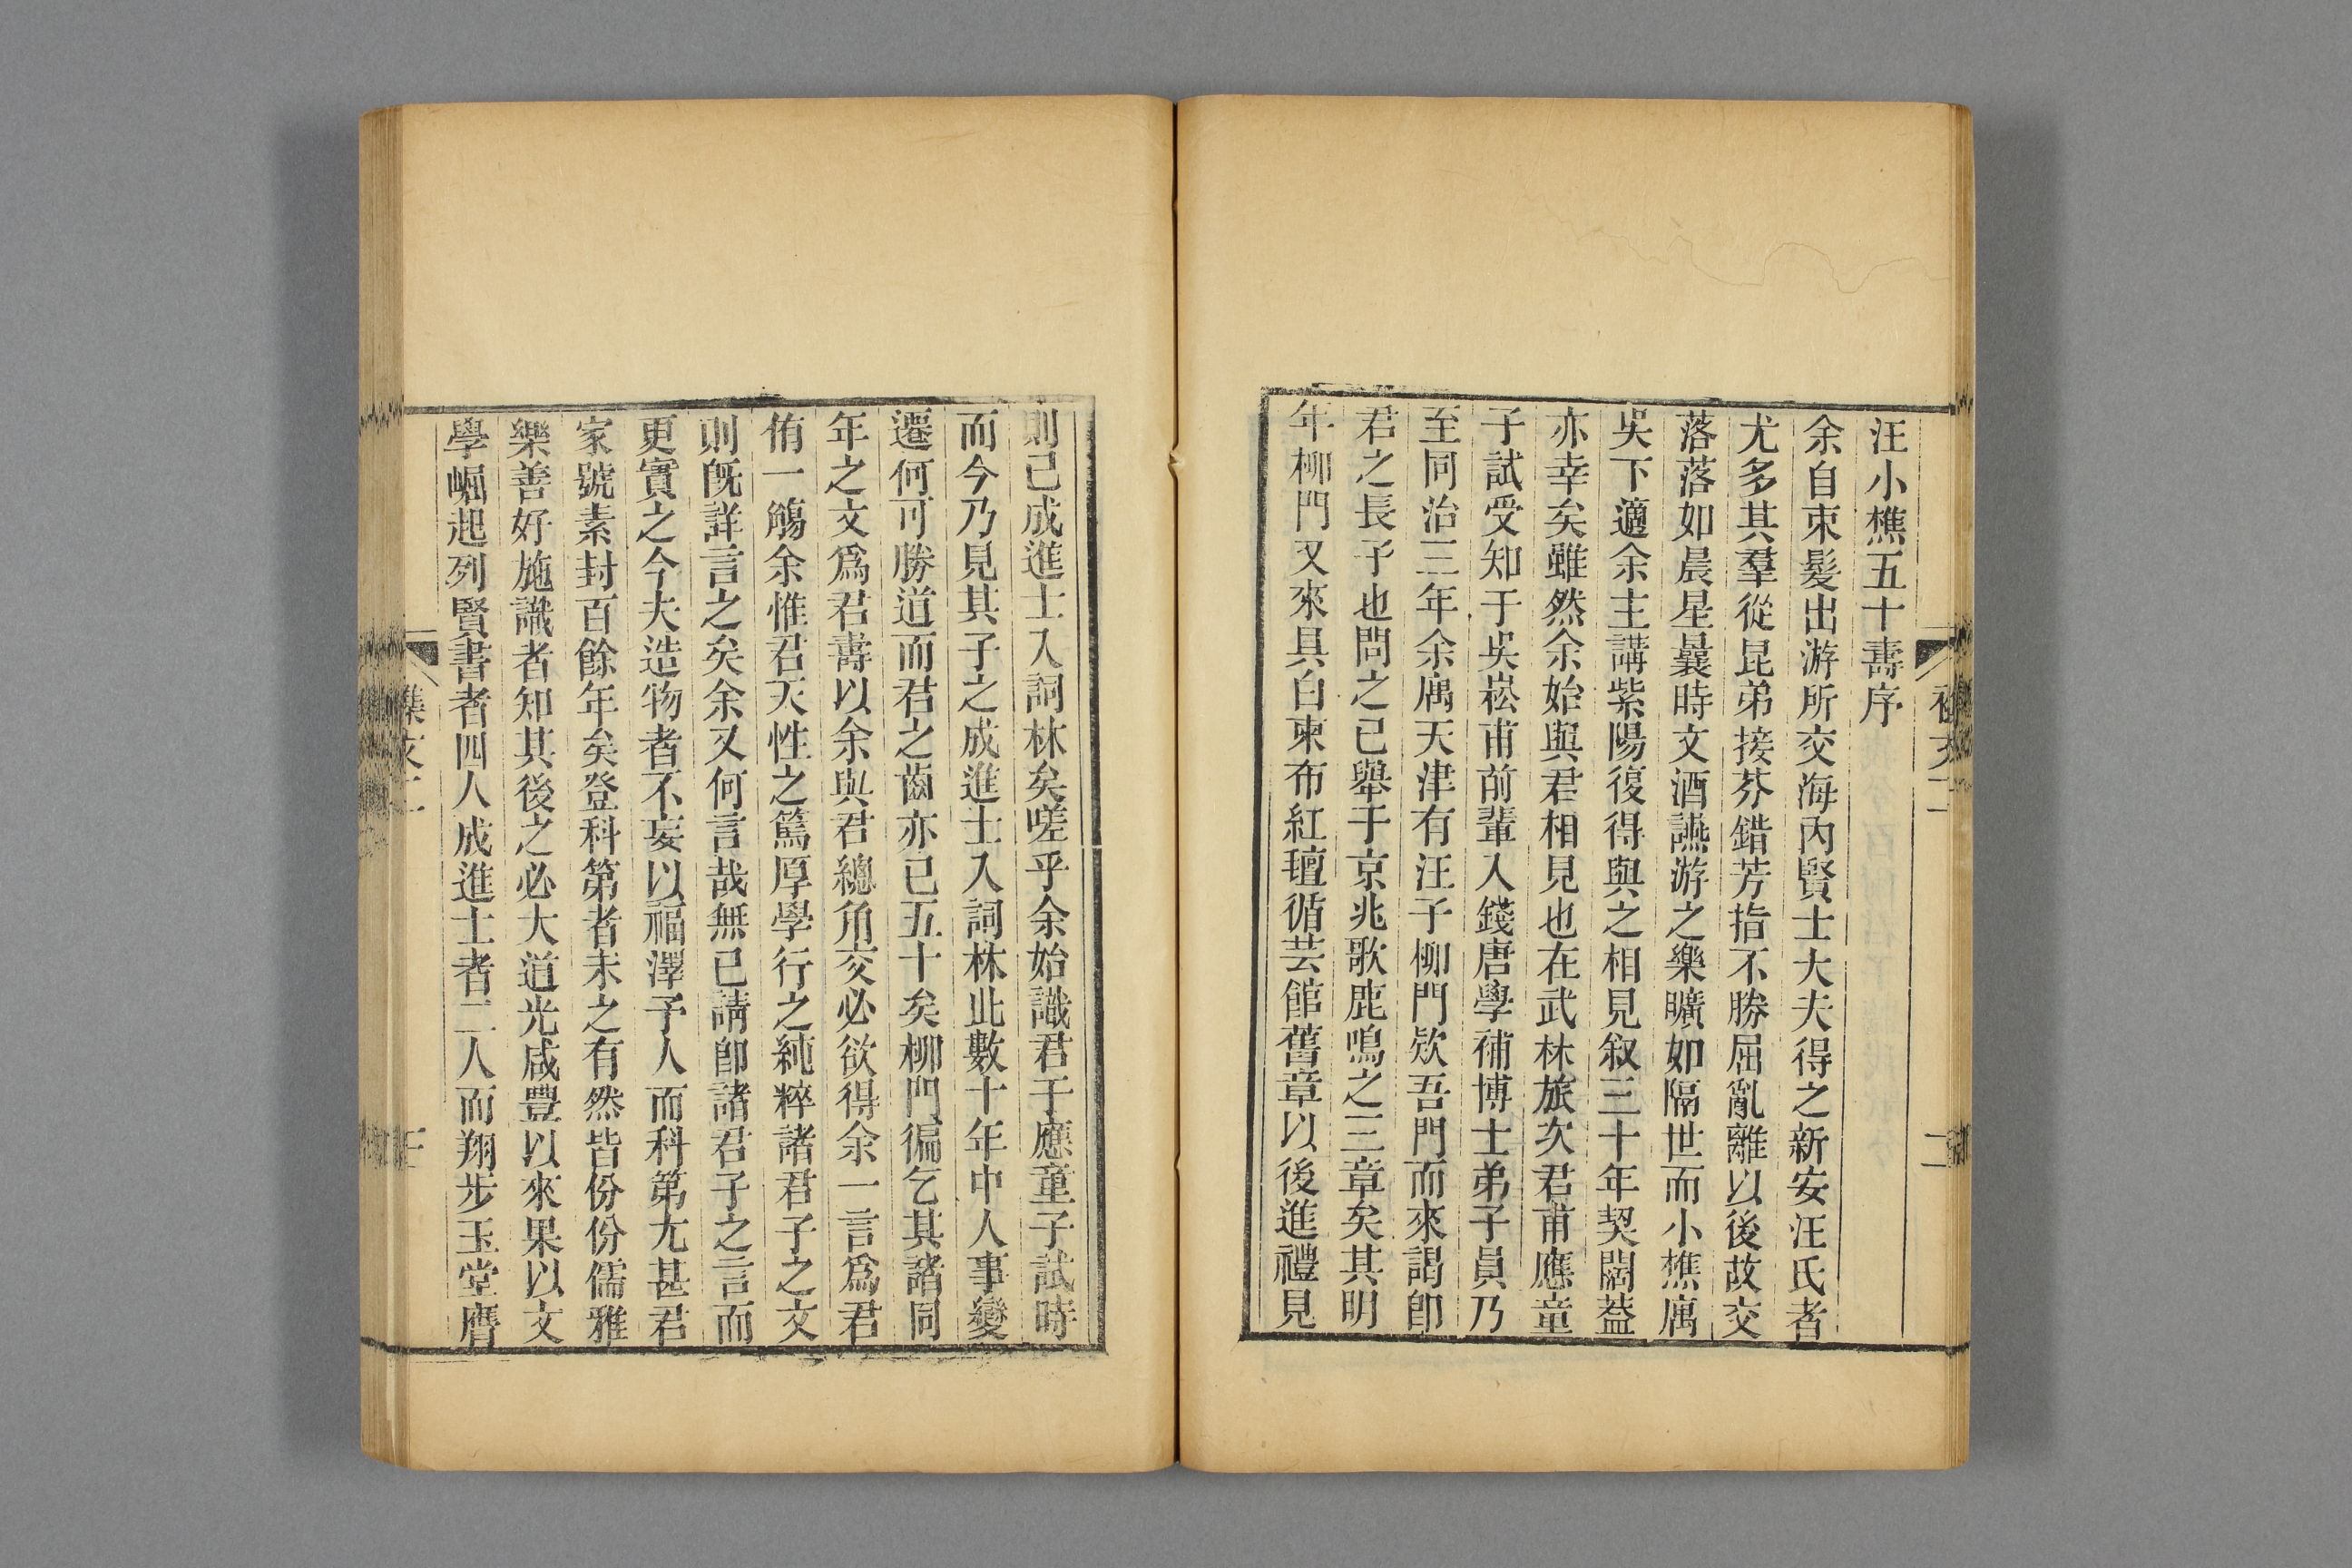 汪小樵五十壽序
余自束髮出游所交海內賢士大夫得之新安汪氏者
尤多其羣從昆弟接芬錯芳指不勝屈亂離以後故交
落落如晨星曩時文酒讌游之樂曠如隔世而小樵寓
吳下適余主講紫陽復得與之相見叙三十年契闊葢
亦幸矣雖然余始與君相見也在武林旅次君甫應童
子試受知于吳崧甫前輩入錢唐學補博士弟子員乃
至同治三年余寓天津有汪子柳門欵吾門而來謁卽
君之長子也問之已舉于京兆歌鹿鳴之三章矣其明
年柳門又來具白柬布紅氊循芸館舊章以後進禮見
則已成進士入詞林矣嗟乎余始識君于應童子試時
而今乃見其子之成進士入詞林此數十年中人事變
遷何可勝道而君之齒亦已五十矣柳門徧乞其諸同
年之文爲君壽以余與君總角交必欲得余一言爲君
侑一觴余惟君天性之篤厚學行之純粹諸君子之文
則旣詳言之矣余又何言哉無已請卽諸君子之言而
更實之今夫造物者不妄以福澤予人而科第尢甚君
家號素封百餘年矣登科第者未之有然皆份份儒雅
樂善好施識者知其後之必大道光咸豐以來果以文
學崛起列賢書者四人成進士者二人而翔步玉堂膺